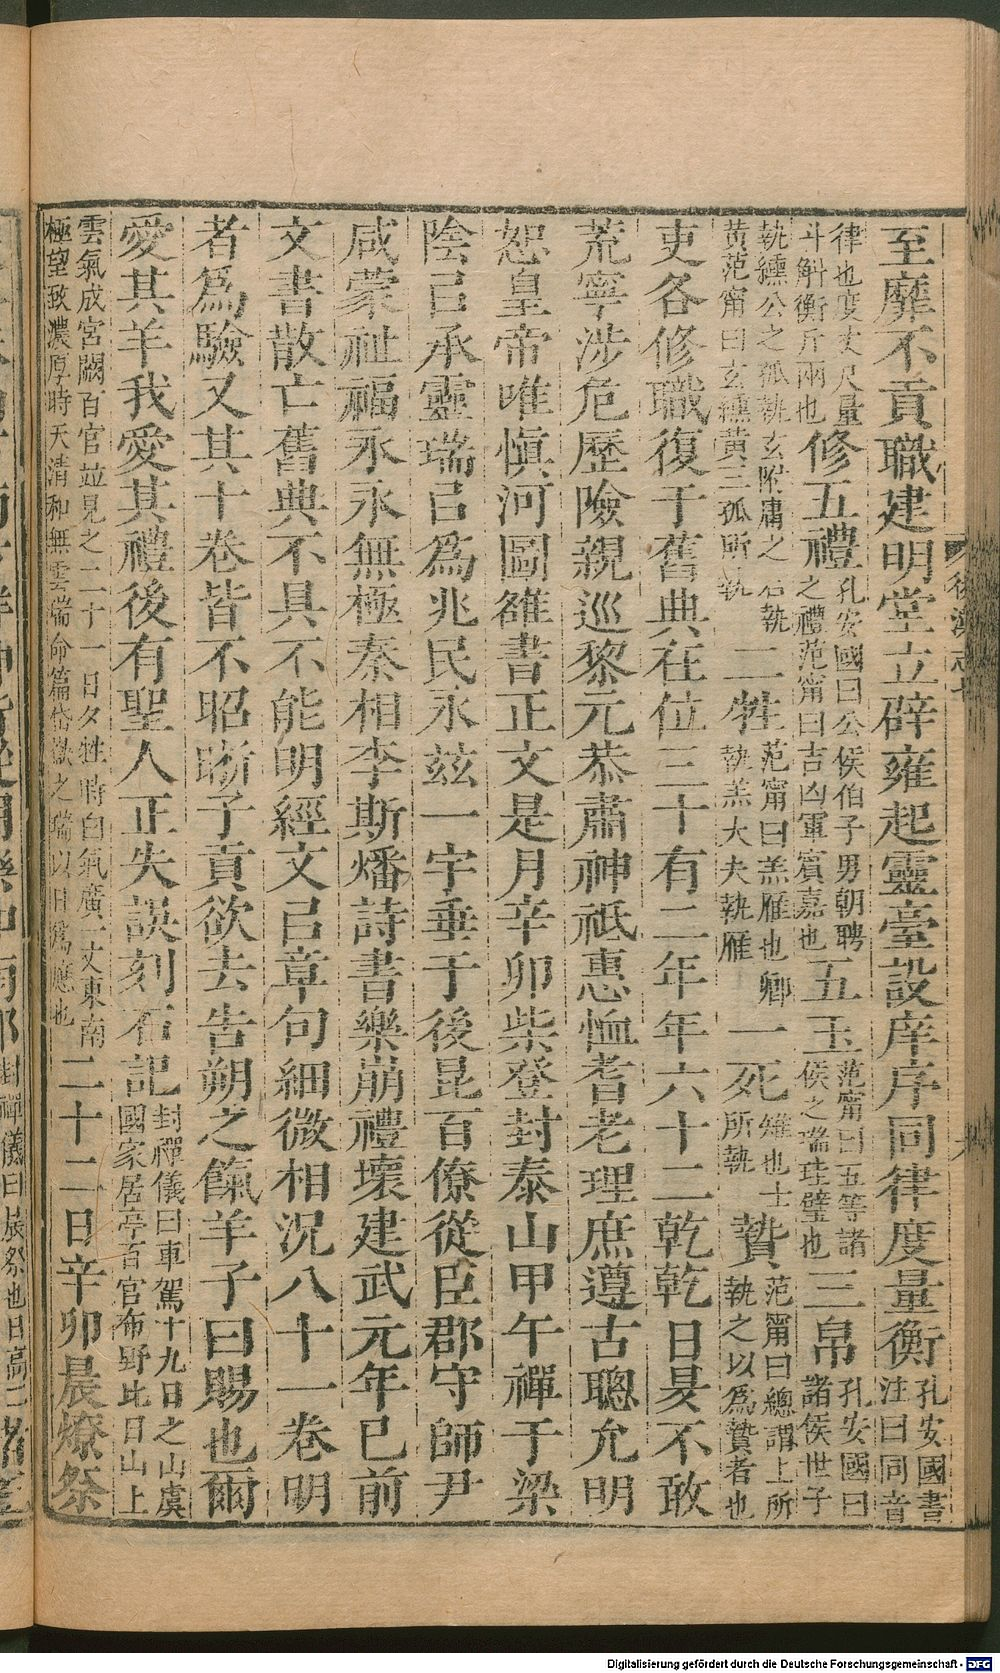 至靡不貢職建明堂立辟雍起靈臺設庠序同律度量衡孔安國書注曰同音
律也度丈尺量斗斛衡斤兩也修五禮孔安國曰公侯伯子男朝聘之禮范甯曰吉凶軍賓嘉也五玉范甯曰五等諸侯之瑞珪璧也三帛孔安國曰諸侯世子
執纁公之孤執玄附庸之君執黃范甯曰玄纁黃三孤所執二牲范甯曰羔雁也卿執羔大夫執雁一死雉也士所執贄范甯曰總謂上所執之以為贄者也
吏各修職復于舊典在位三十有二年年六十二乾乾日昃不敢
荒寧涉危歷險親巡黎元恭肅神祇惠恤耆老理庶遵古聰允明
恕皇帝唯慎河圖雒書正文是月辛卯柴登封泰山甲午禪于梁
陰已承靈瑞已為兆民永茲一宇垂于後昆百僚從臣郡守師尹
咸蒙祉福永永無極秦相李斯燔詩書樂崩禮壞建武元年已前
文書散亡舊典不具不能明經文已章句細微相況八十一卷明
者為驗又其十卷皆不昭晣子貢欲去告朔之餼羊子曰賜也爾
愛其羊我愛其禮後有聖人正失誤刻石記封禪儀曰車駕十九日之山虞國家居亭百官布野比日山上
雲氣成宮闕百官並見之二十一日夕牲時白氣廣一丈東南極望致濃厚時天清和無雲瑞命篇岱嶽之瑞以日為應也二十二日辛卯晨燎祭
後漢志七
Digitalisierung gefördert durch die Deutsche Forschungsgemeinschaft - DFG